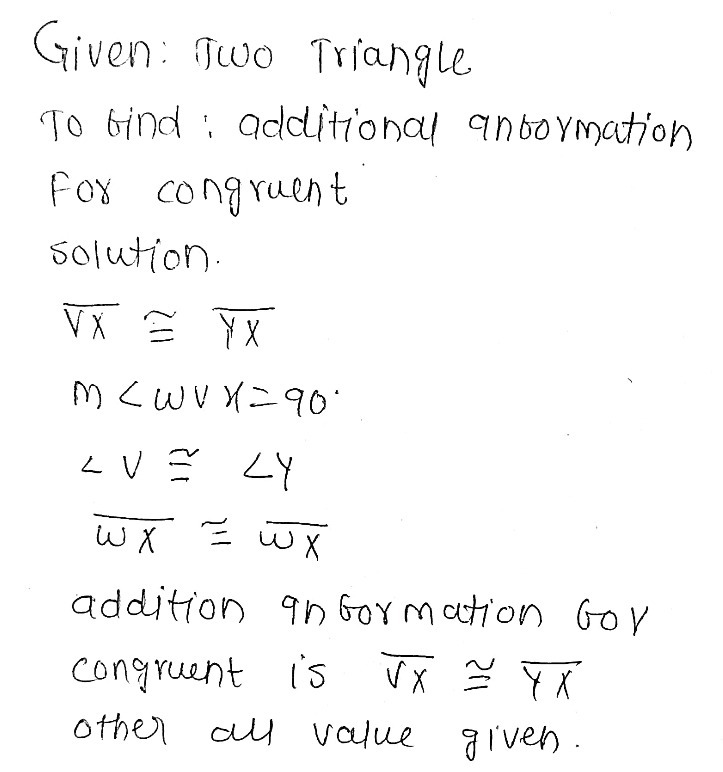 Given: Two Triangle
To find : additional information
For congruent
solution.
V̅X̅ ≅ Y̅X̅
m∠WVX=90°
∠V ≅ ∠Y
W̅X̅ ≅ W̅X̅
addition information for
congruent is V̅X̅ ≅ Y̅X̅
other all value given.